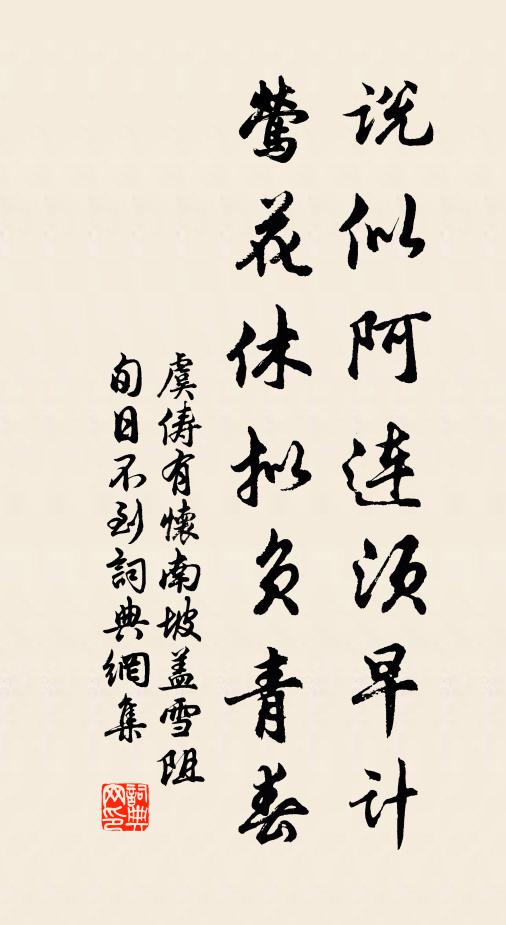 说似阿连须早计
莺花休拟负青春
虞俦有懷南坡盖雪阻
旬日不到詞典網集
詞典
网印